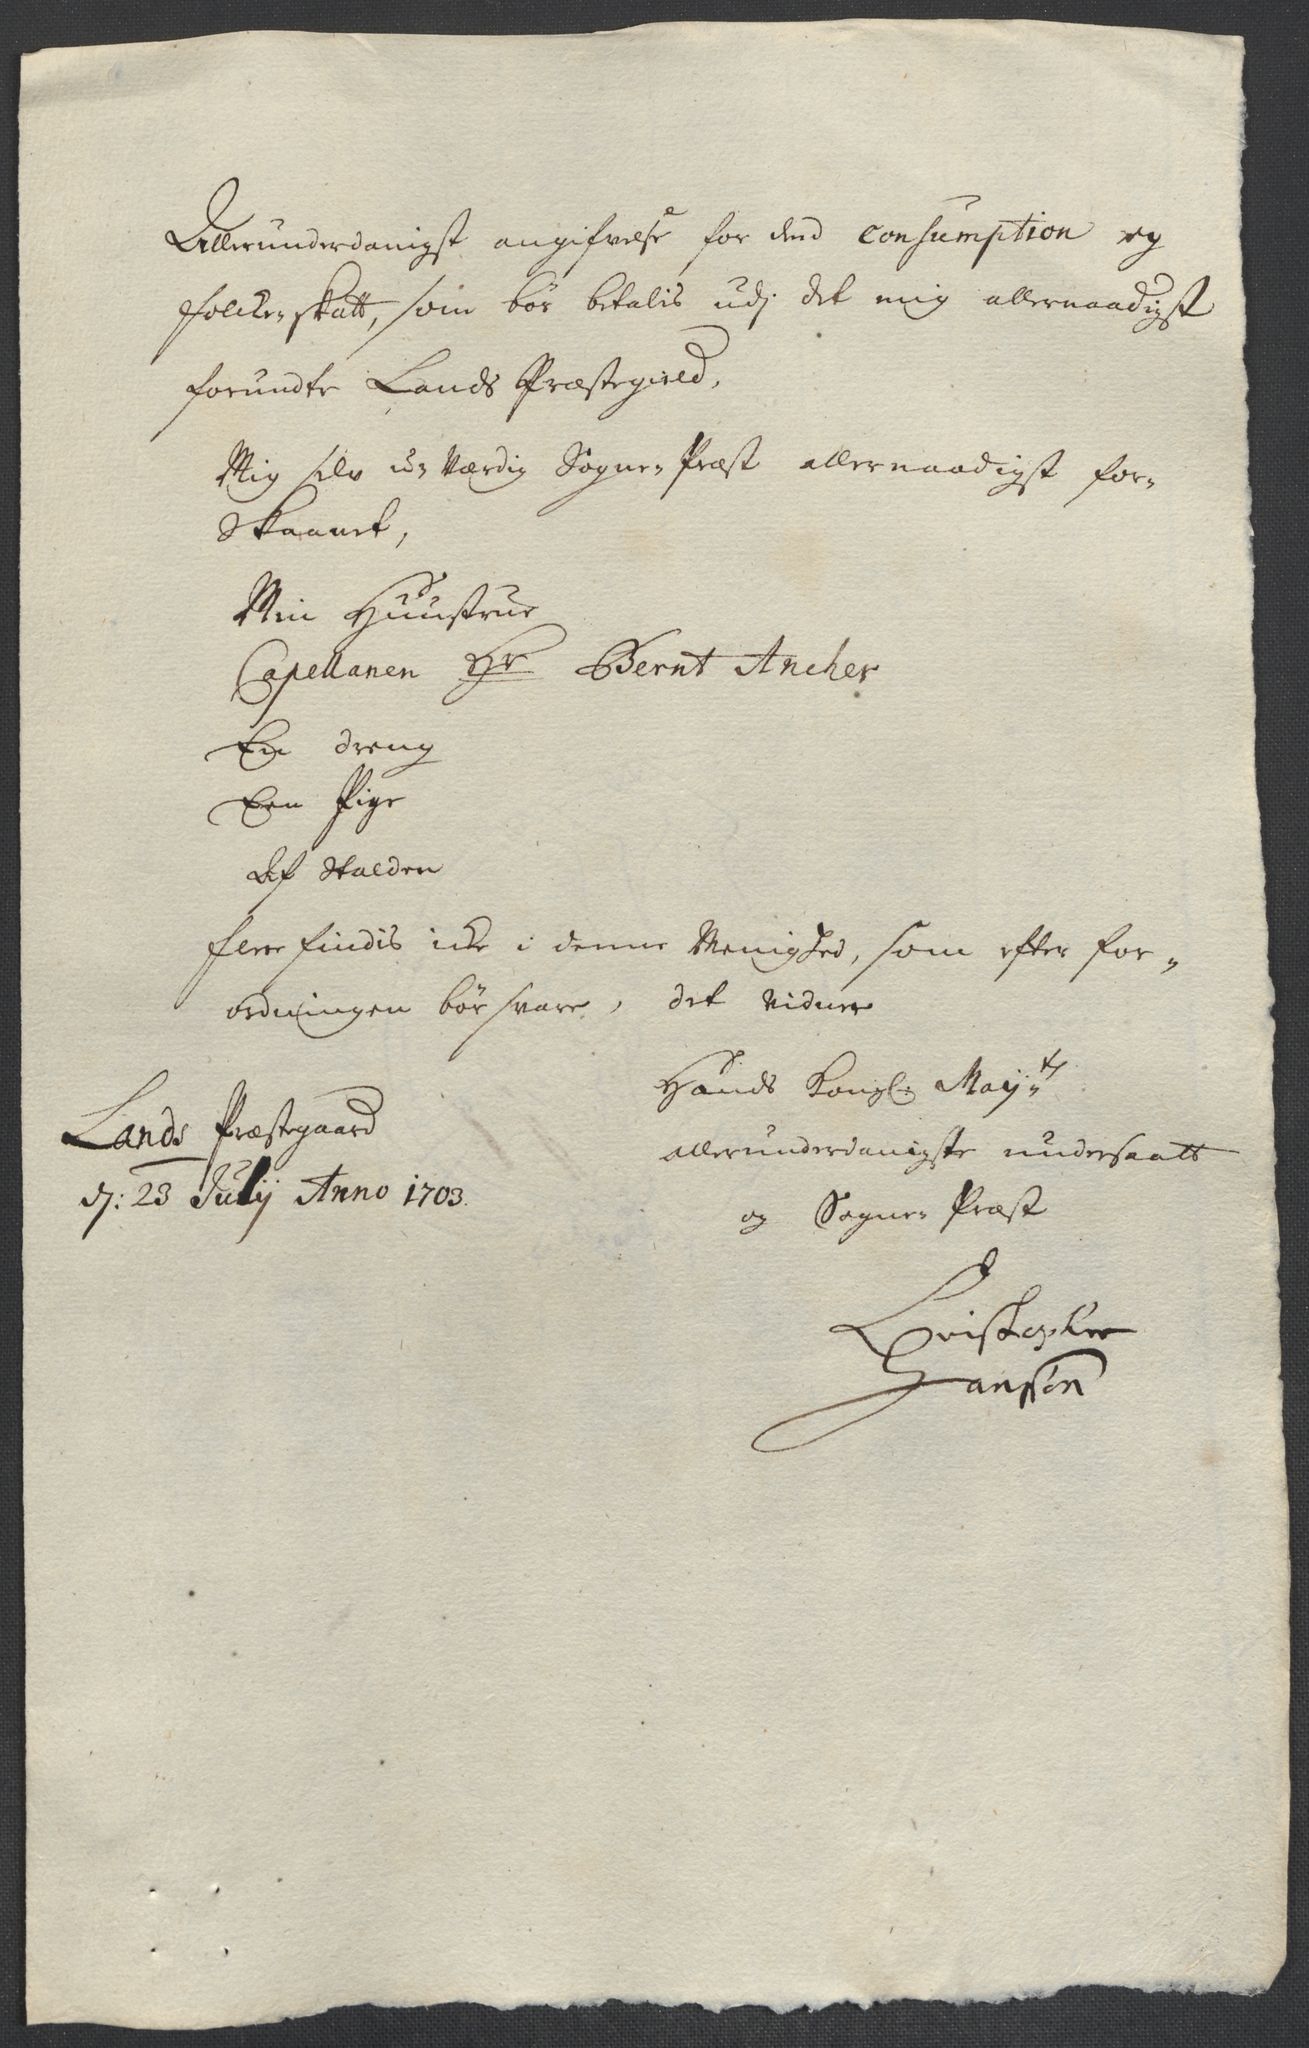 Allerunderdanigst angifvelse for dend Consumption og
folche-skatt, som bør betalis udj det mig allernaadigst
forundte Lands Præstegield.
Mig selv u-Værdig Sogne-Præst allernaadigst for-
skaanet,
Min Huustrue
Capellanen Hr Bernt Ancher
En dreng
Een Pige
Af Stalden
fleere findis icke i denne Menighed, som efter for-
ordningen bør svare, det vidner
Lands Præstegaard
d: 23 Julij Anno 1703.
Hands Kongl: Mayts
allerunderdanigste undersaatt
og Sogne-Præst
Christopher
Hanssøn